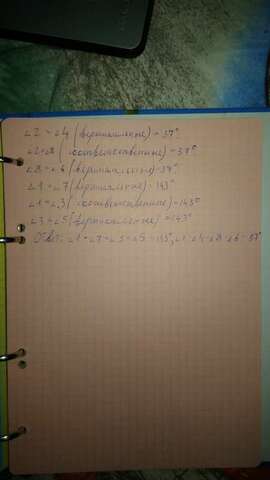 ∠2 = ∠4 (вертикальные) = 37°
∠2 = ∠8 (соответственные) = 37°
∠8 = ∠6 (вертикальные) = 37°
∠1 = ∠7 (вертикальные) = 143°
∠1 = ∠3 (соответственные) = 143°
∠3 = ∠5 (вертикальные) = 143°
Ответ: ∠1 = ∠7 = ∠3 = ∠5 = 143°, ∠2 = ∠4 = ∠8 = ∠6 = 37°